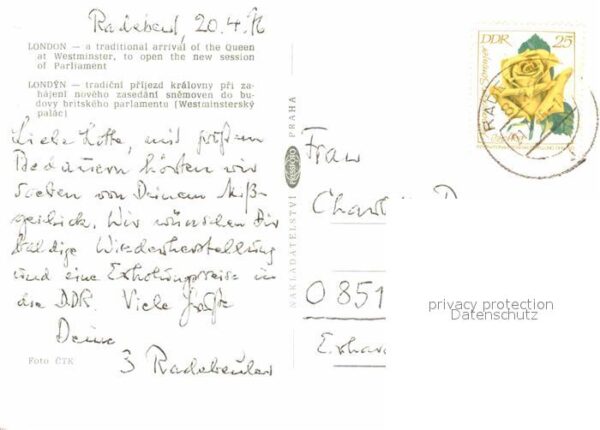 Radebeul, 20.4.76
LONDON — a traditional arrival of the Queen
at Westminster, to open the new session
of Parliament
LONDÝN — tradiční příjezd královny při za-
hájení nového zasedání sněmoven do bu-
dovy britského parlamentu (Westminsterský
palác)
Liebe Lotte, mit großem
Bedauern hörten wir
soeben von Deinem Miß-
geschick. Wir wünschen Dir
baldige Wiederherstellung
und eine Erholungsreise in
die DDR. Viele Grüße
Deine
3 Radebeuler
Foto ČTK
NAKLADATELSTVÍ PRESSFOTO PRAHA
DDR 25
Frau
0851
privacy protection
Datenschutz